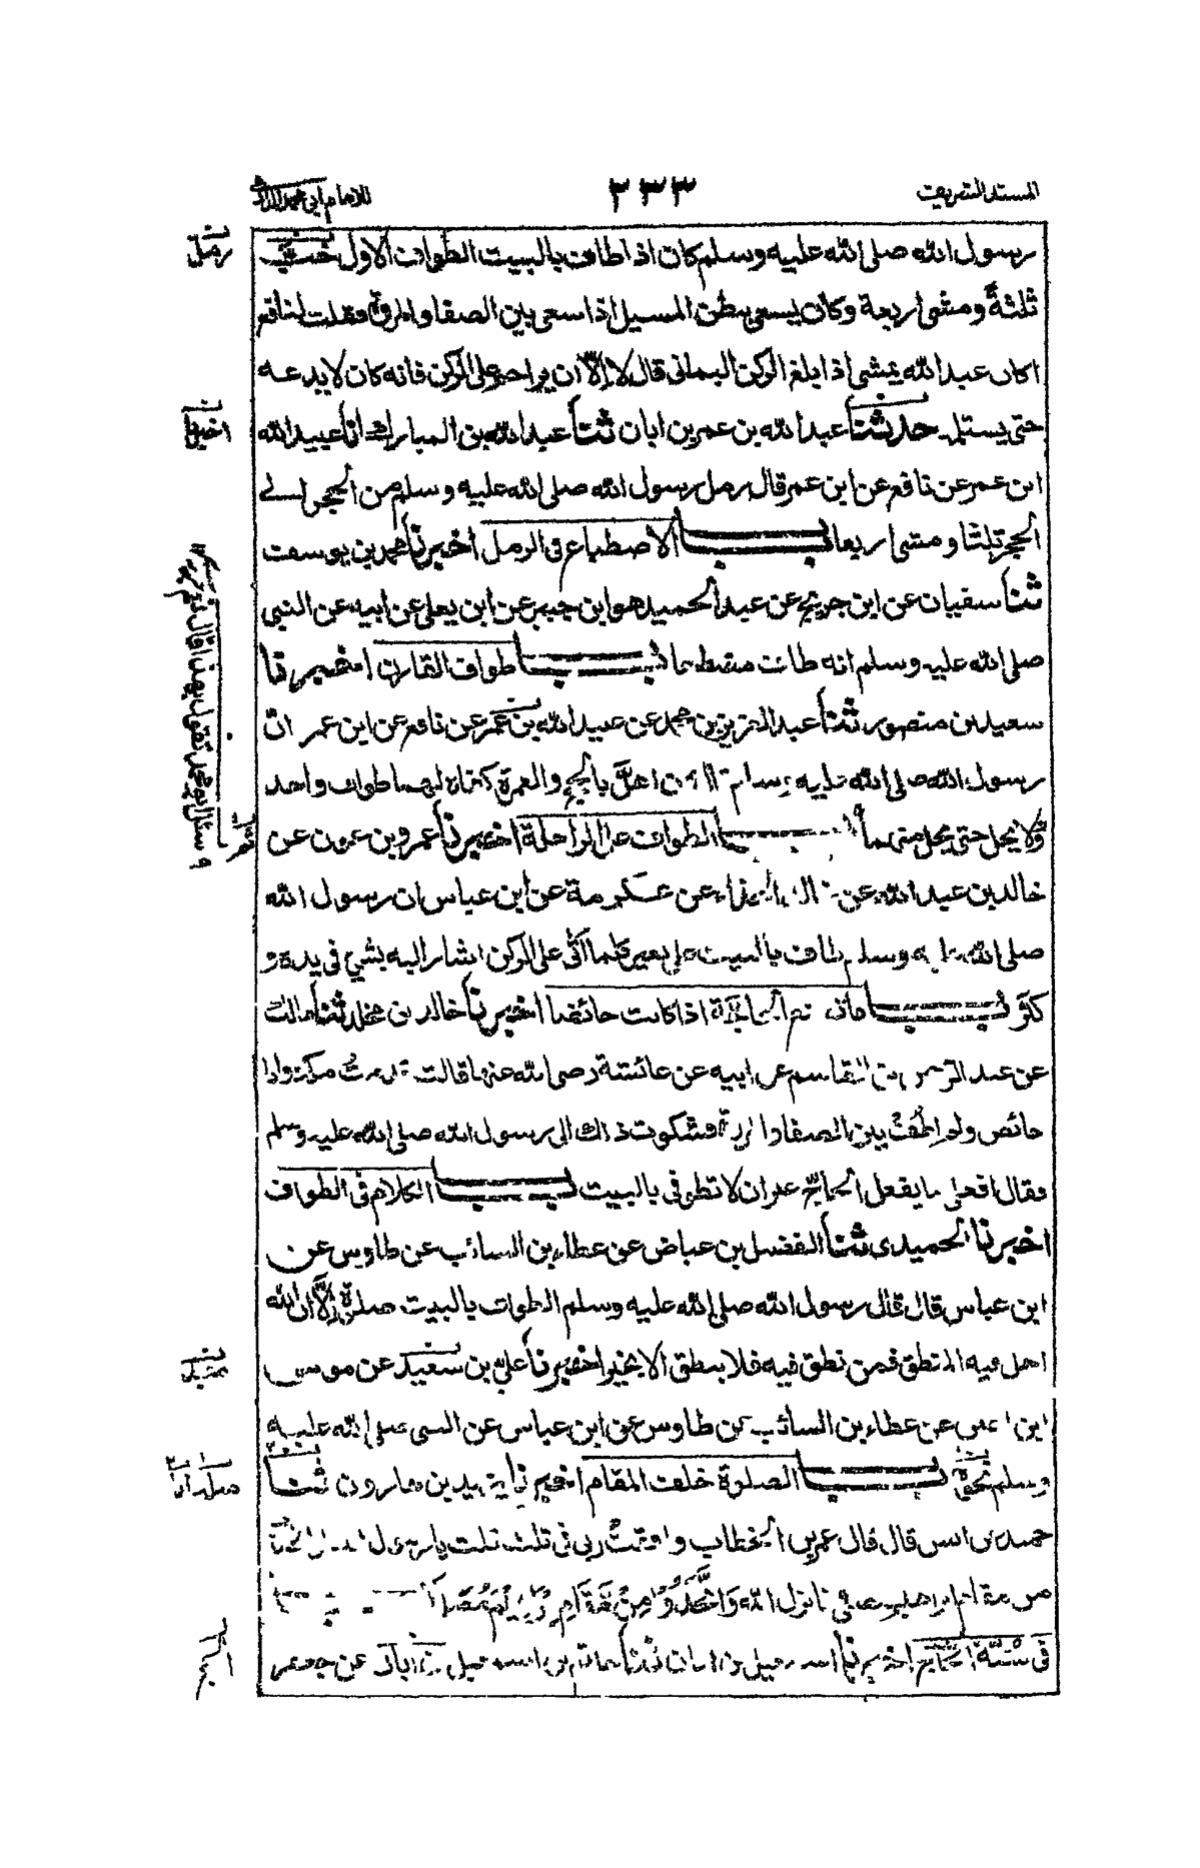 المسند الشريف ٣٣٣ للامام ابي محمد الدارمي
رسول الله صلى الله عليه وسلم كان اذا طاف بالبيت الطواف الاول خب
رمل
ثلثةً ومشى اربعة وكان يسعى ببطن المسيل اذا سعى بين الصفا والمروة فقلت لنافع
اكان عبد الله يمشى اذا بلغ الركن اليمانى قال لا الا ان يزاحم على الركن فانه كان لا يدعه
حتى يستلمه حدثنا عبد الله بن عمر بن ابان ثنا عبد الله بن المبارك انا عبيد الله
اخبرنا
ابن عمر عن نافع عن ابن عمر قال رمل رسول الله صلى الله عليه وسلم من الحجر الى
الحجر ثلثا ومشى اربعا باب الاضطباع فى الرمل أخبرنا محمد بن يوسف
ثنا سفيان عن ابن جريج عن عبد الحميد هو ابن جبير عن ابن يعلى عن ابيه عن النبى
صلى الله عليه وسلم انه طاف مضطبعا باب طواف القارن اخبرنا
سعيد بن منصور ثنا عبد العزيز بن محمد عن عبيد الله بن عمر عن نافع عن ابن عمر انّ
رسول الله صلى الله عليه وسلم قال من اهلّ بالحج والعمرة كفاه لهما طواف واحد
ولا يحل حتى يحل منهما باب الطواف على الراحلة اخبرنا عمرو بن عون عن
خالد بن عبد الله عن خالد الحذاء عن عكرمة عن ابن عباس ان رسول الله
صلى الله عليه وسلم طاف بالبيت على بعير كلما اتى على الركن اشار اليه بشئ فى يده و
كبّر باب ما تصنع الحاجّة اذا كانت حائضا اخبرنا خالد بن مخلد ثنا مالك
عن عبد الرحمن بن القاسم عن ابيه عن عائشة رضى الله عنها قالت قدمت مكة وانا
حائض ولم اطُفْ بين الصفا والمروة فشكوت ذلك الى رسول الله صلى الله عليه وسلم
فقال افعلى ما يفعل الحاجّ غير ان لا تطوفى بالبيت باب الكلام فى الطواف
اخبرنا الحميدى ثنا الفضيل بن عياض عن عطاء بن السائب عن طاوس عن
ابن عباس قال قال رسول الله صلى الله عليه وسلم الطواف بالبيت صلوة الّا ان الله
احل فيه المنطق فمن نطق فيه فلا ينطق الا بخير اخبرنا على بن سعيد عن موسى
ابن اعين عن عطاء بن السائب عن طاوس عن ابن عباس عن النبى صلى الله عليه
وسلم نحوه باب الصلوة خلف المقام اخبرنا يزيد بن هارون ثنا
حميد عن انس قال قال عمر بن الخطاب وافقتُ ربى فى ثلث قلت يا رسول الله
من مقام ابراهيم مصلى فانزل الله وَاتَّخِذُوا مِنْ مَقَامِ اِبْرَاهِيْمَ مُصَلًّى
فى سُنّة الحاج اخبرنا اسمعيل بن ابان ثنا حاتم بن اسمعيل عن جعفر